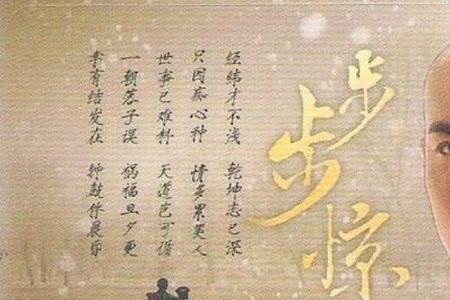 步步惊
经纬才不浅 乾坤志已深
只因痴心种 情多累美人
世事已难料 天道岂可循
一朝落子误 祸福旦夕更
幸有结发在 钟鼓伴晨昏